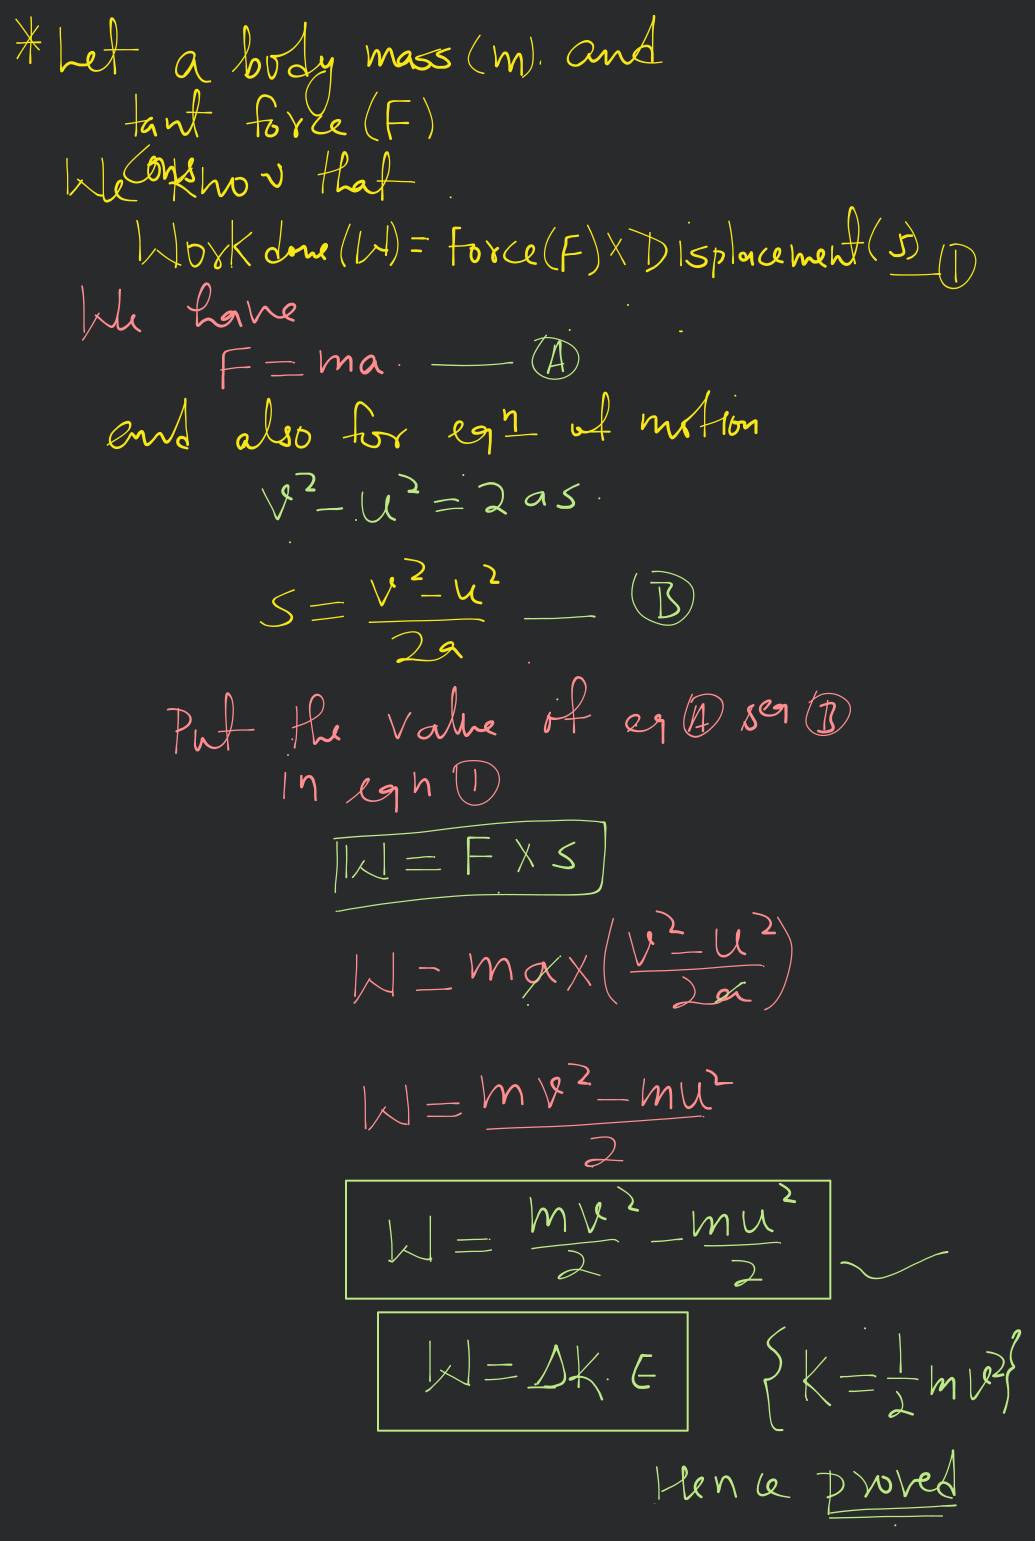 * Let a body mass (m). and
tant force (F)
We Cons know that.
Work done (W) = Force (F) × Displacement (s) — ①
We have
F = ma. — Ⓐ
and also for eqⁿ of motion
v² - u² = 2as.
S = (v² - u²)/2a — Ⓑ
Put the value of eq Ⓐ & eq Ⓑ
in eqn ①
W = F × s
W = ma × ((v² - u²)/2a)
W = (mv² - mu²)/2
W = mv²/2 - mu²/2
W = ΔK.E {K = 1/2 mv²}
Hence proved